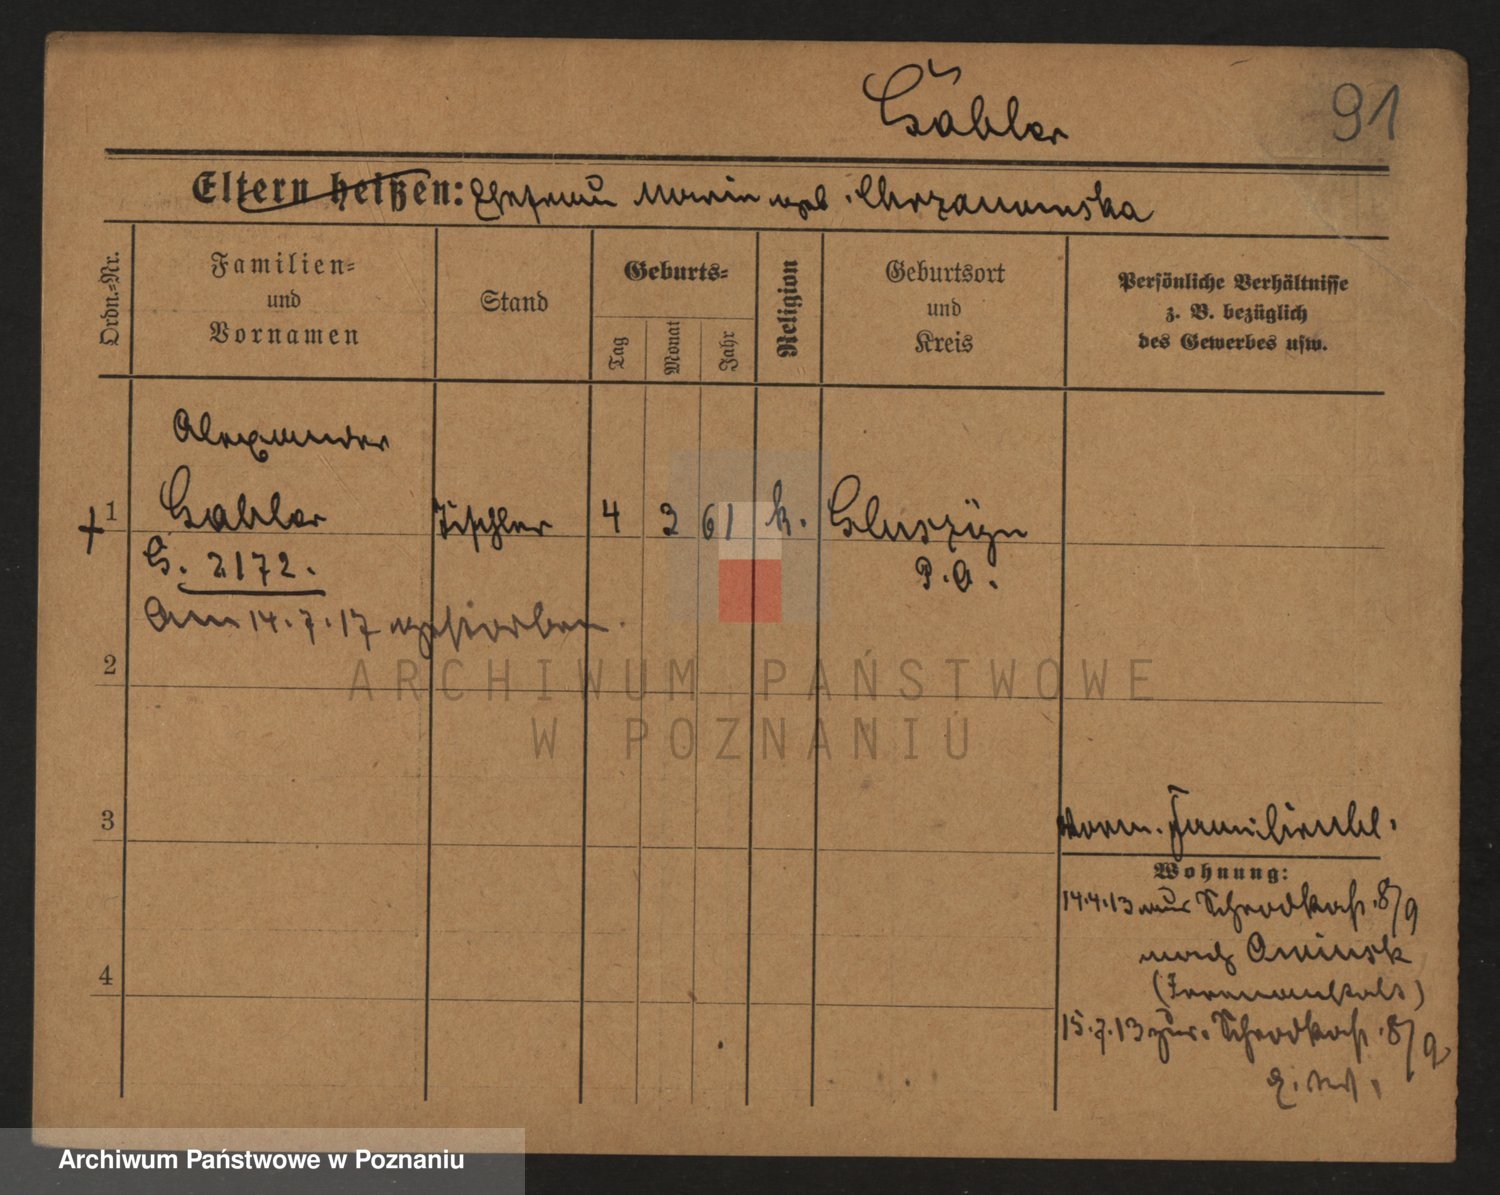 Gäbler
91
Eltern heißen: Ehefrau Maria geb. Chrzanowska
Ordn.-Nr.
Familien-
und
Vornamen
Stand
Geburts-
Tag
Monat
Jahr
Religion
Geburtsort
und
Kreis
Persönliche Verhältnisse
z. B. bezüglich
des Gewerbes usw.
Alexander
1 Gabler Tischler 4 2 61 k. Gluszyn
G. 2172. P. O.
Am 14.7.17 gestorben.
2
ARCHIWUM PAŃSTWOWE
W POZNANIU
3
verm. Familienbl.
Wohnung:
14.4.13 aus Schrodkastr. 8/9
4
nach Owinsk
(Irrenanstalt)
15.7.13 zur. Schrodkastr. 8/9
Archiwum Państwowe w Poznaniu